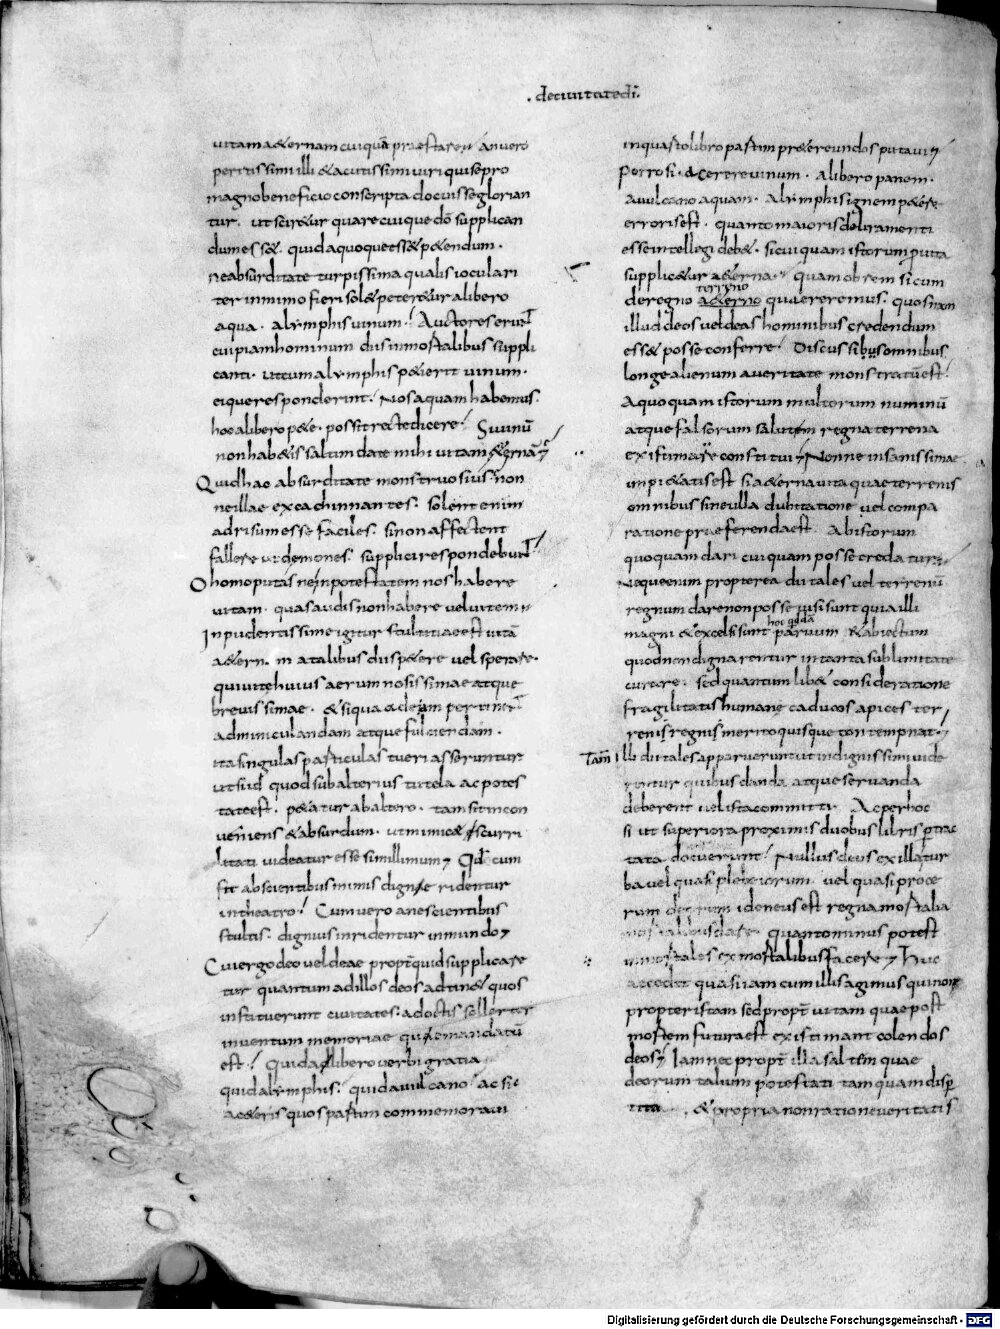 . deciuitatedi .
uitam aeternam cuiquā praestaren an uero
peritissimi illi & acutissimi uiri qui se pro
magno beneficio conscripta docuisse glorian
tur . ut sciret᷒ur quare cuique dō supplican
dum esset . quid a quoque esset petendum .
ne absurditate turpissima qualis ioculari
ter in mimo fieri solet peteretur a libero
aqua . a lymphis uinum . Auctores erunt
cuipiam hominum diis inmortalibus suppli
canti . ut cum a lymphis petierit uinum .
eique responderint . Nos aquam habemus .
hoc a libero pete . possit recte dicere . Si uinū
non habetis saltim date mihi uitam aeternā
Quid hac absurditate monstruosius . non
ne illae excachinnantes . solent enim
ad risum esse faciles . si non affectent
fallere ut demones . supplici respondebunt
O homo putas ne in potestatem nos habere
uitam . quas audis non habere uel uitem
Inpudentissime igitur stultitiae est uitā
aetern m a talibus diis petere uel sperare .
qui uitae huius aerumnosissimae atque
breuissimae . & si qua ad eam pertinet
adminiculandam atque fulciendam .
ita singulas particulas tueri asseruntur
ut si id quod sub alterius tutela ac potes
tate est . petatur ab altero . tam sit incon
ueniens & absurdum . ut mimicae scurri
litati uideatur esse simillimum Qd cum
fit ab scientibus mimis digne ridentur
in theatro . Cum uero a nescientibus
stultis . dignius inridentur in mundo
Cui ergo deo uel deae propt quid supplicare
tur quantum ad illos deos adtinet quos
instituerunt ciuitates . a doctis sollerter
inuentum memoriae que mandatū
est . Quid a libero uerbi gratia
quid a lymphis . quid a uulcano . ac sic
a ceteris quos partim commemoraui
in quarto libro partim praetereundos putaui
Porro si . a cerere uinum . a libero panem .
a uulcano aquam . a lymphis ignem petere
erroris est . quanto maioris deliramenti
esse intellegi debet . si cuiquam istorum pro uita
supplicetur aeterna . quam ob rem si cum
terreno
de regno aeterno quaereremus . quosnam
illud deos uel deas hominibus credendum
esset posse conferre . Discussis omnibus
longe alienum a ueritate monstratū est .
A quoquam istorum multorum numinū
atque falsorum saltem regna terrena
existimare constitui Nonne insanissimae
impietatis est si aeterna uita quae terrenis
omnibus sine ulla dubitatione uel compa
ratione praeferenda est . Ab istorum
quoquam dari cuiquam posse credatur
Neque enim propterea dii tales uel terrenū
regnum dare non posse uisi sunt quia illi
magni & excelsi sunt paruum & abiectum
quod non dignarentur in tanta sublimitate
curare . sed quantum libet consideratione
fragilitatis humanę caducos apices ter
reni regni merito quisque contempnat .
Tam Illi dii tales apparuerunt ut indignissimi uide
rentur quibus danda atque seruanda
deberent uel ista committi Ac per hoc
si ut superiora proximis duobus libris ptrac
tata docuerunt . Nullus deus ex illa tur
ba uel quasi plebeiorum . uel quasi proce
rum deorum idoneus est regna mortalia
mortalibus dare . quanto minus potest
inmortales ex mortalibus facere Huc
accedit quasi iam cum illis agimus qui non
propter istam sed propt uitam quae post
mortem futura est existimant colendos
deos Iam nec propt illa saltem quae
deorum talium potestati tamquam disp
tita . & propria non ratione ueritatis